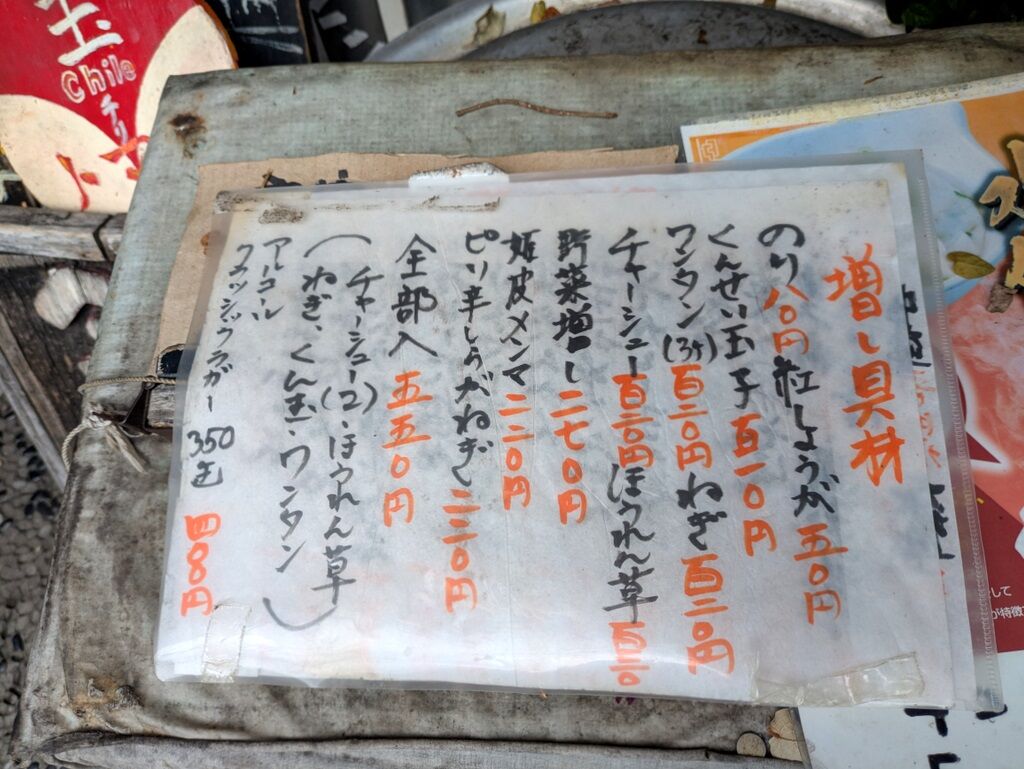 増し具材
のり 八〇円 紅しょうが 五〇円
くんせい玉子 百一〇円
ワンタン(3ケ) 百二〇円 ねぎ 百二〇円
チャーシュー 百二〇円 ほうれん草 百二〇
野菜増し 二七〇円
姫皮メンマ 二二〇円
ピリ辛しらがねぎ 二二〇円
全部入 五五〇円
(チャーシュー(2)・ほうれん草
ねぎ、くん玉・ワンタン)
アルコール
クラッシックラガー 350缶 四〇〇円
玉
Chile
チリ
して
が特徴